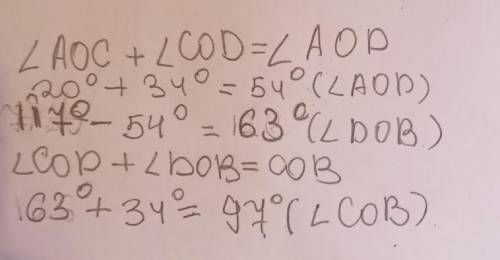 ∠AOC + ∠COD = ∠AOD
20° + 34° = 54° (∠AOD)
117° - 54° = 63° (∠DOB)
∠COD + ∠DOB = COB
63° + 34° = 97° (∠COB)